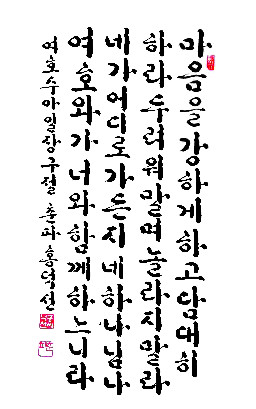 마음을 강하게 하고 담대히
하라 두려워 말며 놀라지 말라
네가 어디로 가든지 네 하나님 나
여호와가 너와 함께 하느니라
여호수아 일장 구절 춘파 홍덕선